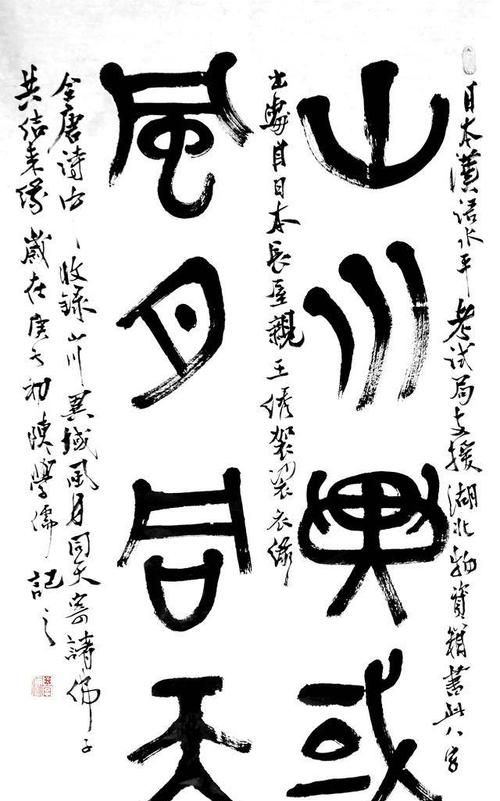 日本漢語水平考試局支援湖北物資箱書此八字
山川異或
出處其日本長屋親王綉袈裟衣緣
風月同天
全唐诗中收録山川異域風月同天寄諸佛子
共结来缘歲在庚子初陳學儒記之